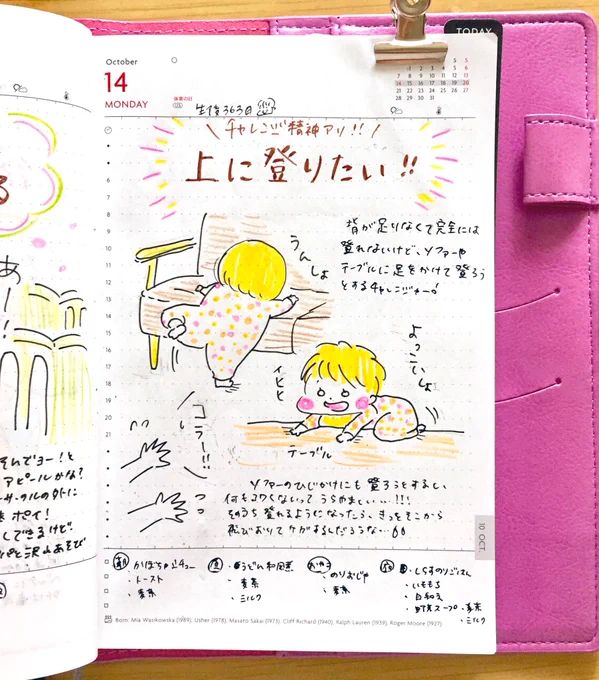 October
14
MONDAY
体育の日
TODAY
5 6
7 8 9 10 11 12 13
14 15 16 17 18 19 20
21 22 23 24 25 26 27
28 29 30 31
生後363日
チャレンジ精神アリ!!
上に登りたい!!
背が足りなくて完全には
登れないけど、ソファーや
テーブルに足をかけて登ろう
とするチャレンジャー!
うんしょ
よっこいしょ
イヒヒ
テーブル
コラー!!
ソファーのひじかけにも登ろうとするし
何もコワくないってうらやましい…!!!
そのうち登れるようになったら、きっとそこから
飛びおりてケガするんだろうな…
朝
かぼちゃ
・トースト
・麦茶
昼
・うどん和風煮
・麦茶
・ミルク
おやつ
・のりおじや
・麦茶
夜
・しらすのりごはん
・いももち
・白和え
・野菜スープ・麦茶
・ミルク
10 OCT.
Born: Mia Wasikowska (1989), Usher (1978), Masato Sakai (1973), Cliff Richard (1940), Ralph Lauren (1939), Roger Moore (1927)
る
あ
ー
!
そんでヨー!と
アピールかな?
サークルの外に
ポイ!
してきるけど
沢山あそび